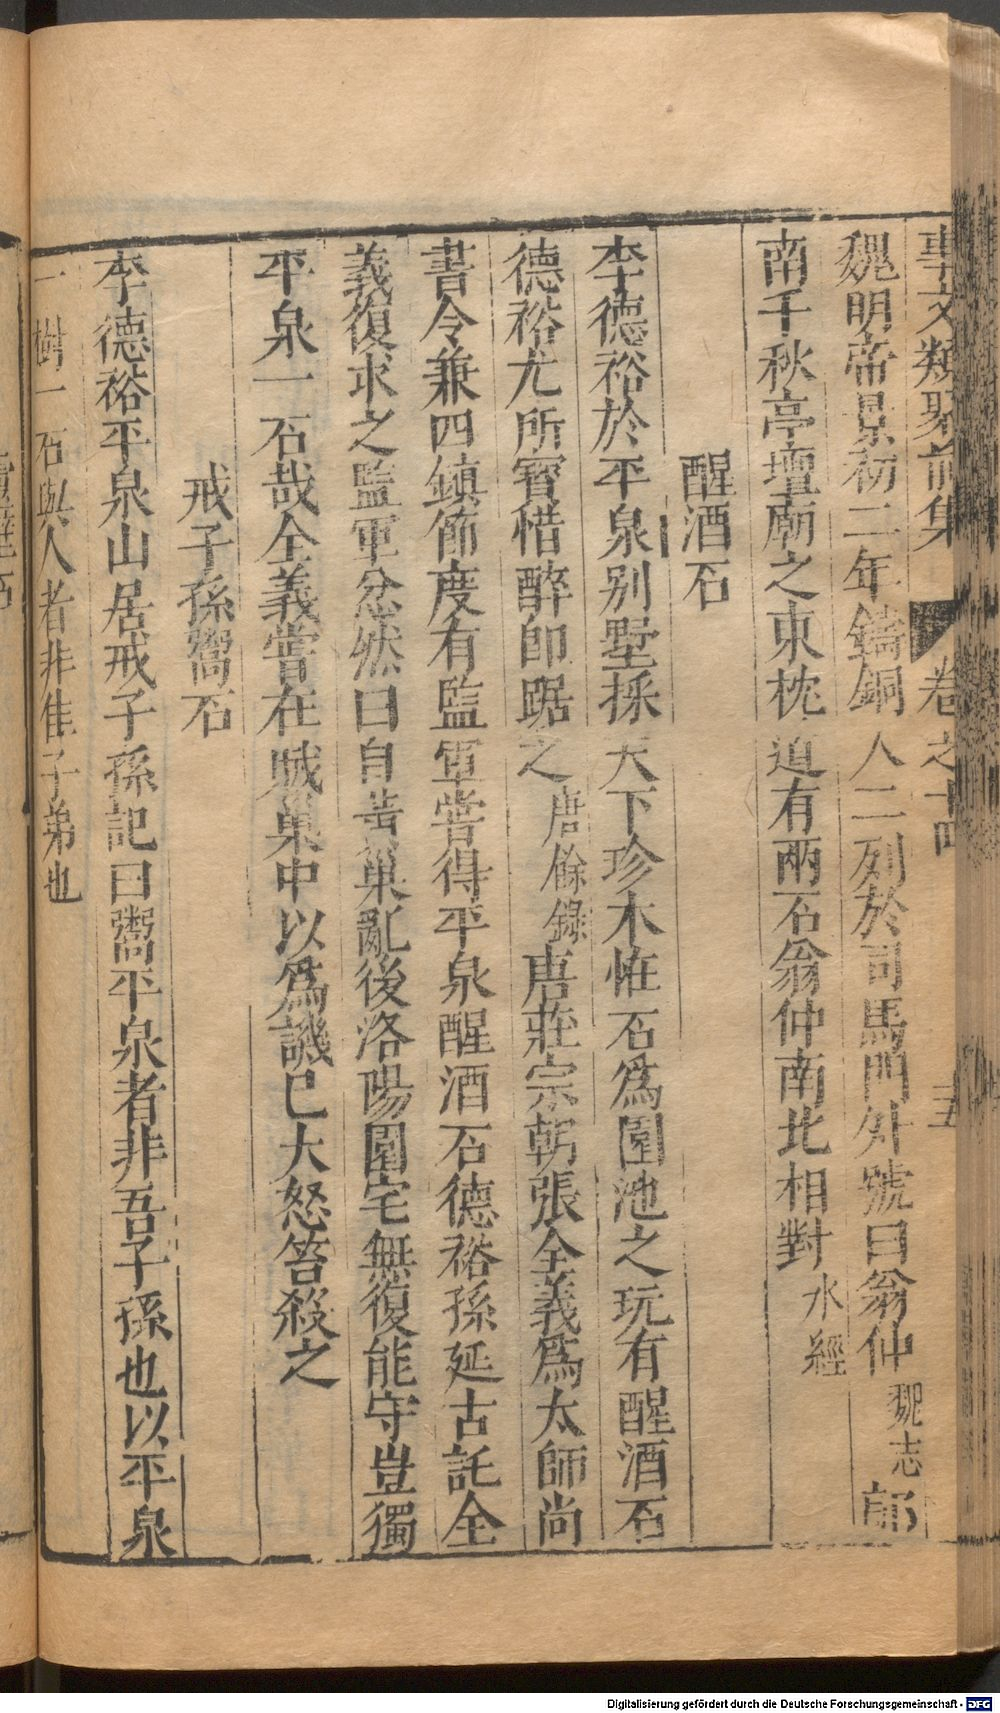 事文類聚前集 卷之十四 五
魏明帝景初二年鑄銅人二列於司馬門外號曰翁仲魏志鄗
南千秋亭壇廟之東枕道有兩石翁仲南北相對水經
醒酒石
李德裕於平泉别墅採天下珍木恠石爲園池之玩有醒酒石
德裕尤所寳惜醉即踞之唐餘錄唐莊宗朝張全義爲太師尚
書令兼四鎮節度有監軍嘗得平泉醒酒石德裕孫延古託全
義復求之監軍忿然曰自黄巢亂後洛陽園宅無復能守豈獨
平泉一石哉全義嘗在賊巢中以爲譏已大怒笞殺之
戒子孫鬻石
李德裕平泉山居戒子孫記曰鬻平泉者非吾子孫也以平泉
一樹一石與人者非佳子弟也
Digitalisierung gefördert durch die Deutsche Forschungsgemeinschaft - DFG